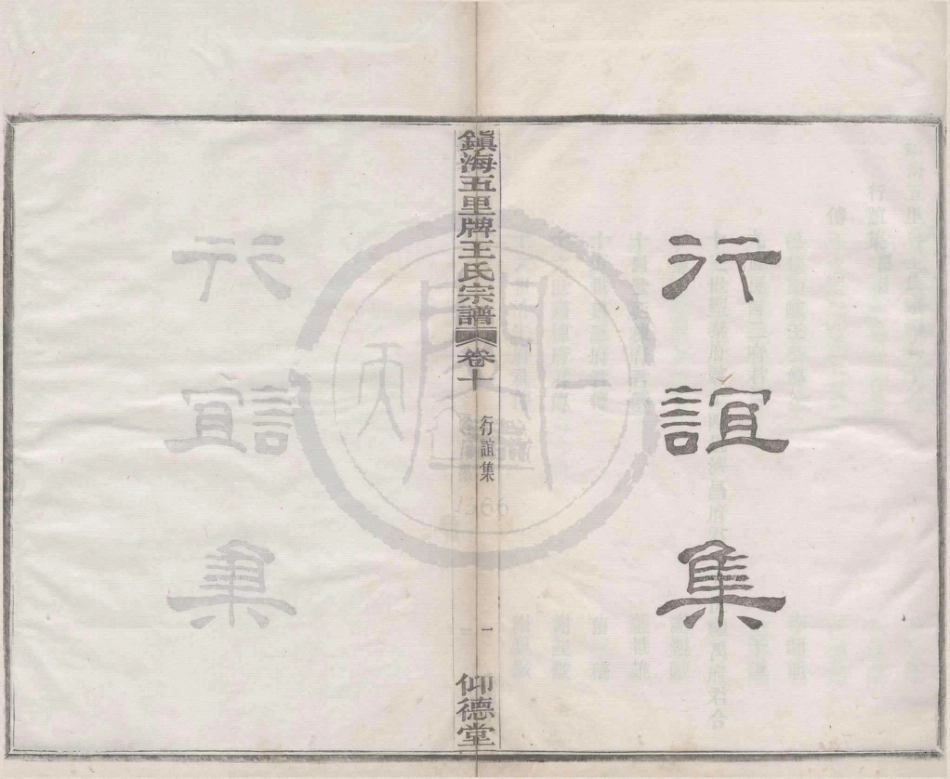 行誼集
鎮海五里牌王氏宗譜
卷十
行誼集
一
仰德堂